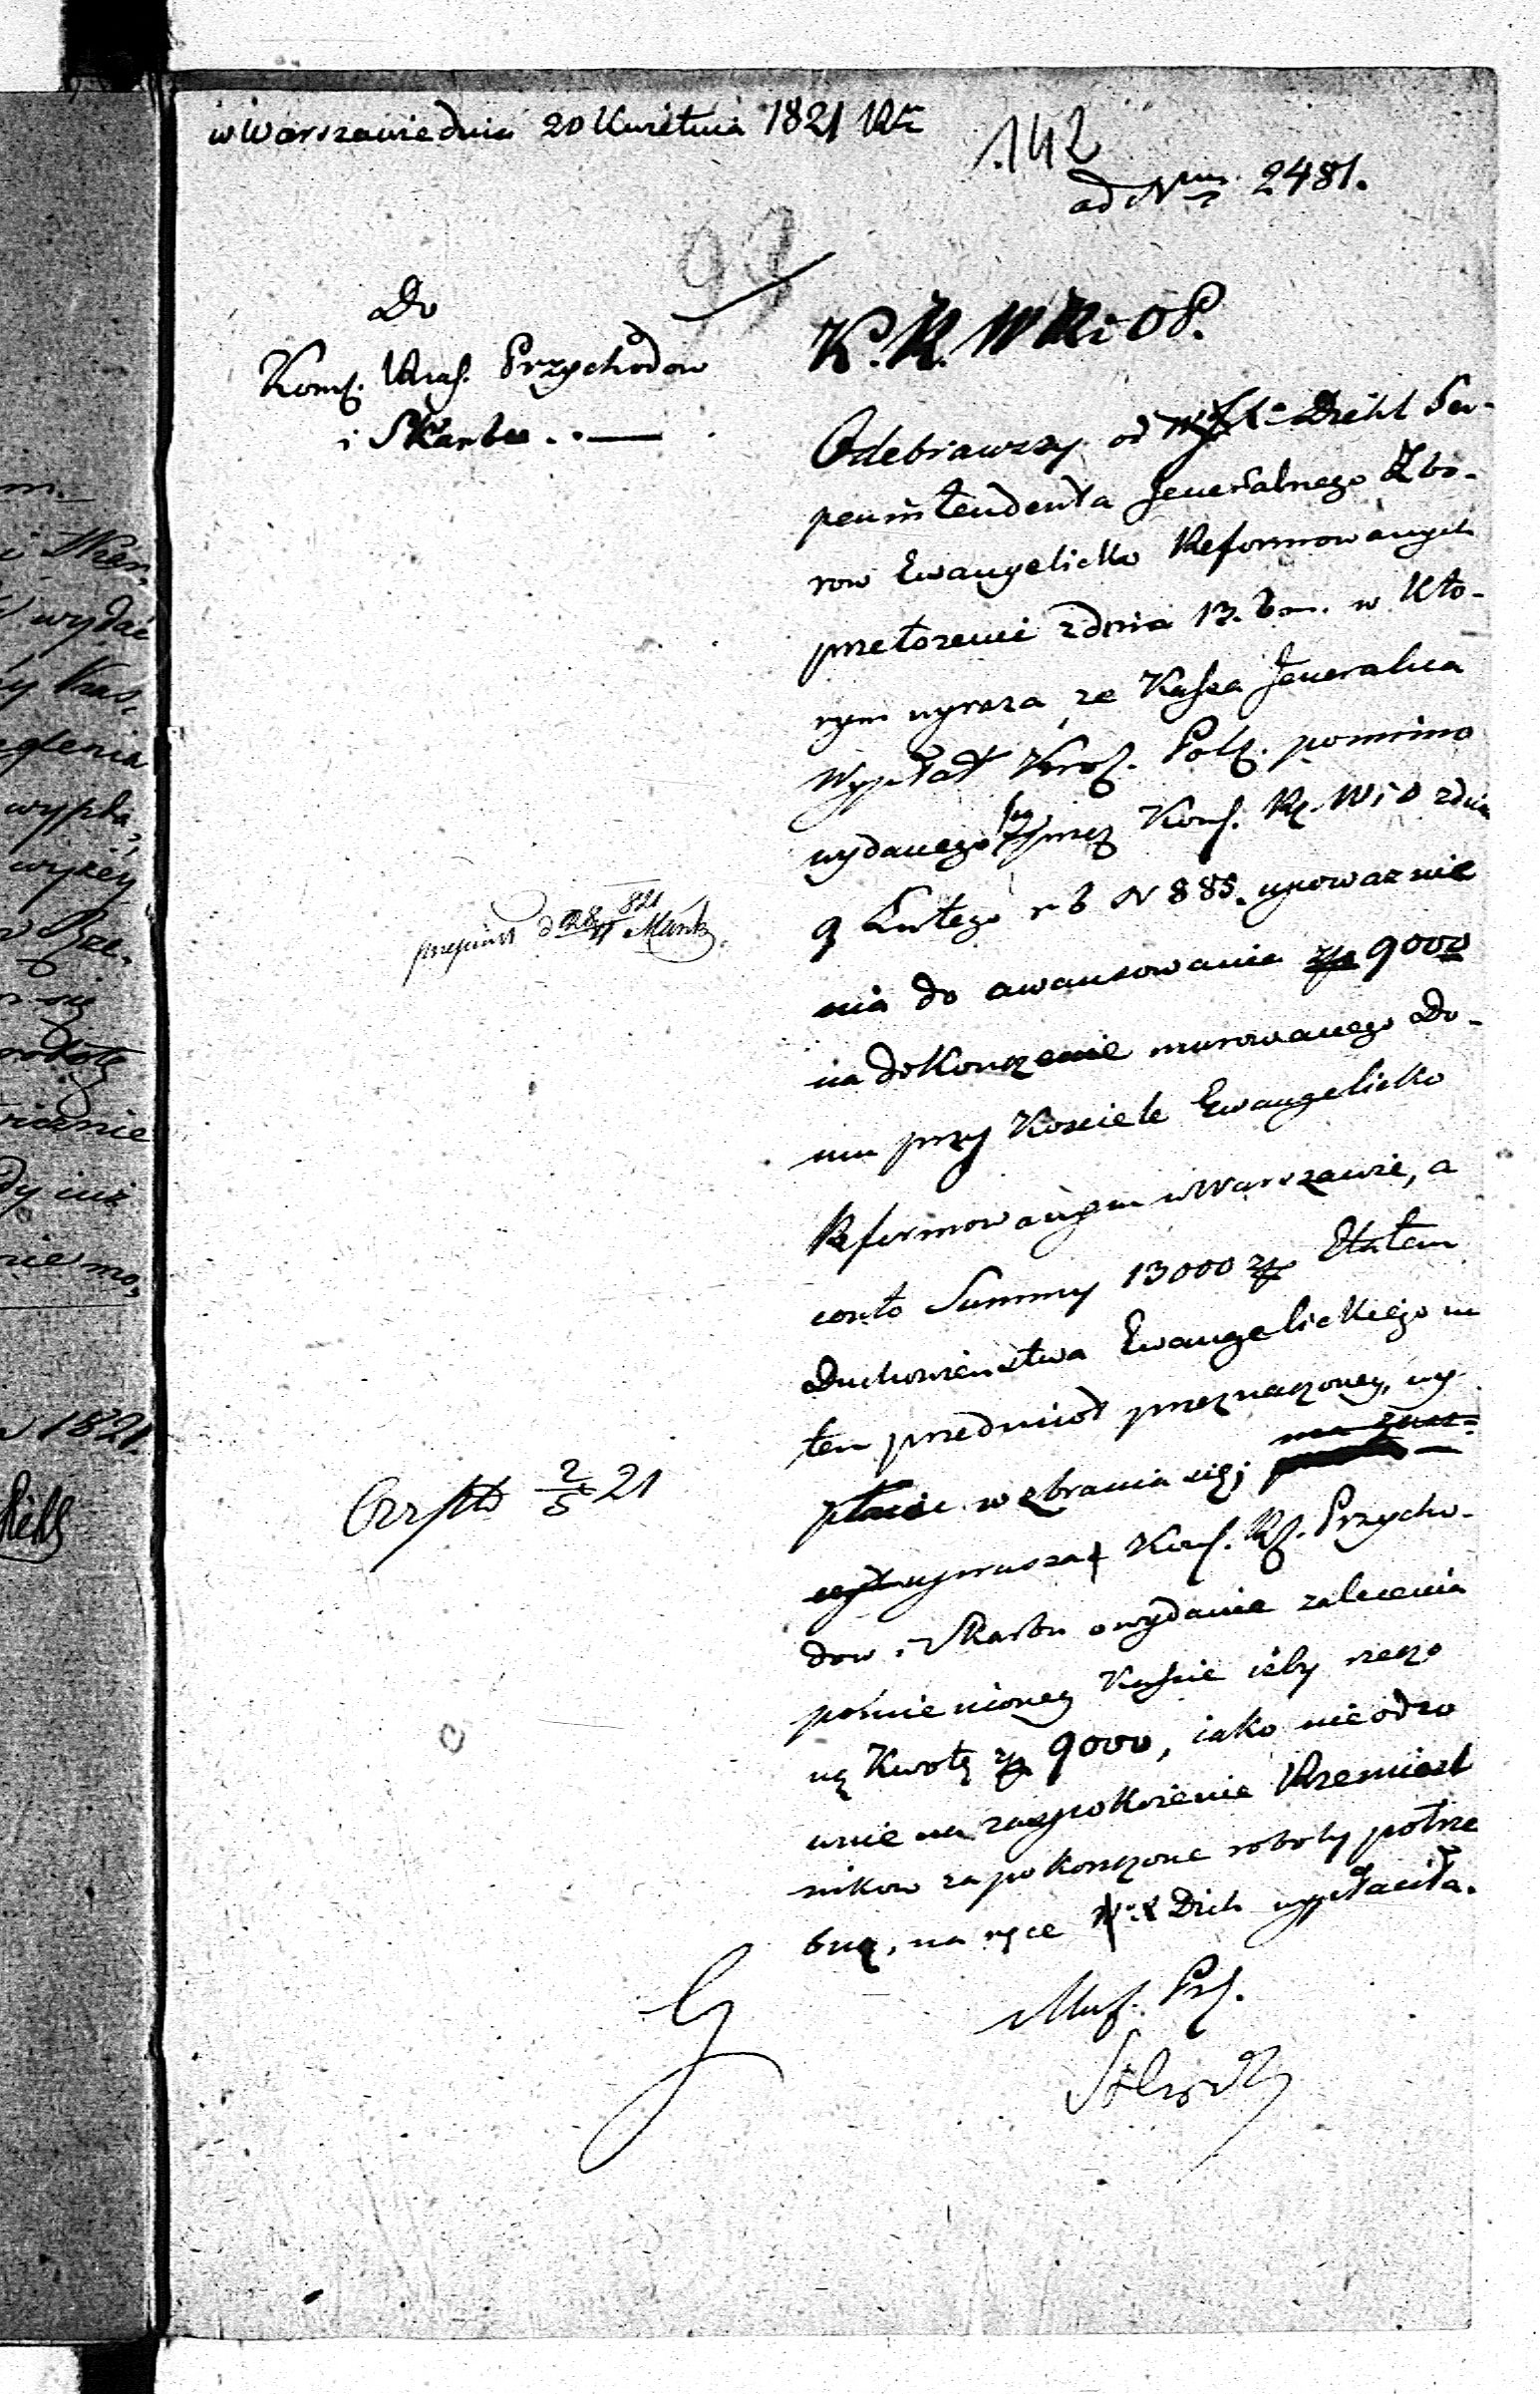 w Warszawie dnia 20 Kwietnia 1821 Rku
142
ad Num. 2481.
99
Do
Komſ. Rząſ. Przychodow
i Skarbu . . —
K. R. W R i O P.
Odebrawszy od Diehl Su-
perintendenta Jeneralnego Zbo-
row Ewangelicko Reformowanych
przełożenie z dnia 13. b m. w któ-
rym wyraża, że Kaſsa Jeneralna
Wypłat Kroſ. Polſ. pomimo
wydanego przez Komſ. Rſ. W i O z dnia
9 Lutego r b N 885 upoważnie
nia do awansowania zp 9000
na dokonczenie murowanego Do-
mu przy Kosciele Ewangelicko
Reformowanym w Warszawie, a
conto Summy 13000 zp Etatem
Duchowieństwa Ewangelickiego na
ten przedmiot przeznaczoney, wy
płacic wzbrania się;
wzywa Komſ. Rſ. Przycho-
dow i Skarbu o wydanie zalecenia
pomienioney Kaſsie iżby rzeczo
ną Kwotę zp 9000, iako nieodzo
wnie na zaspokoienie Rzemiesl
nikow za pokonczone roboty potrze
bną, na ręce Dieh wypłaciła.
Mnſ. Prſ.
przepisał d 28/4 821
2/5 21
m.
wydać
eglenia
wypła,
wyżéy
się
robotę
dy iuż
nie mo,
1821.